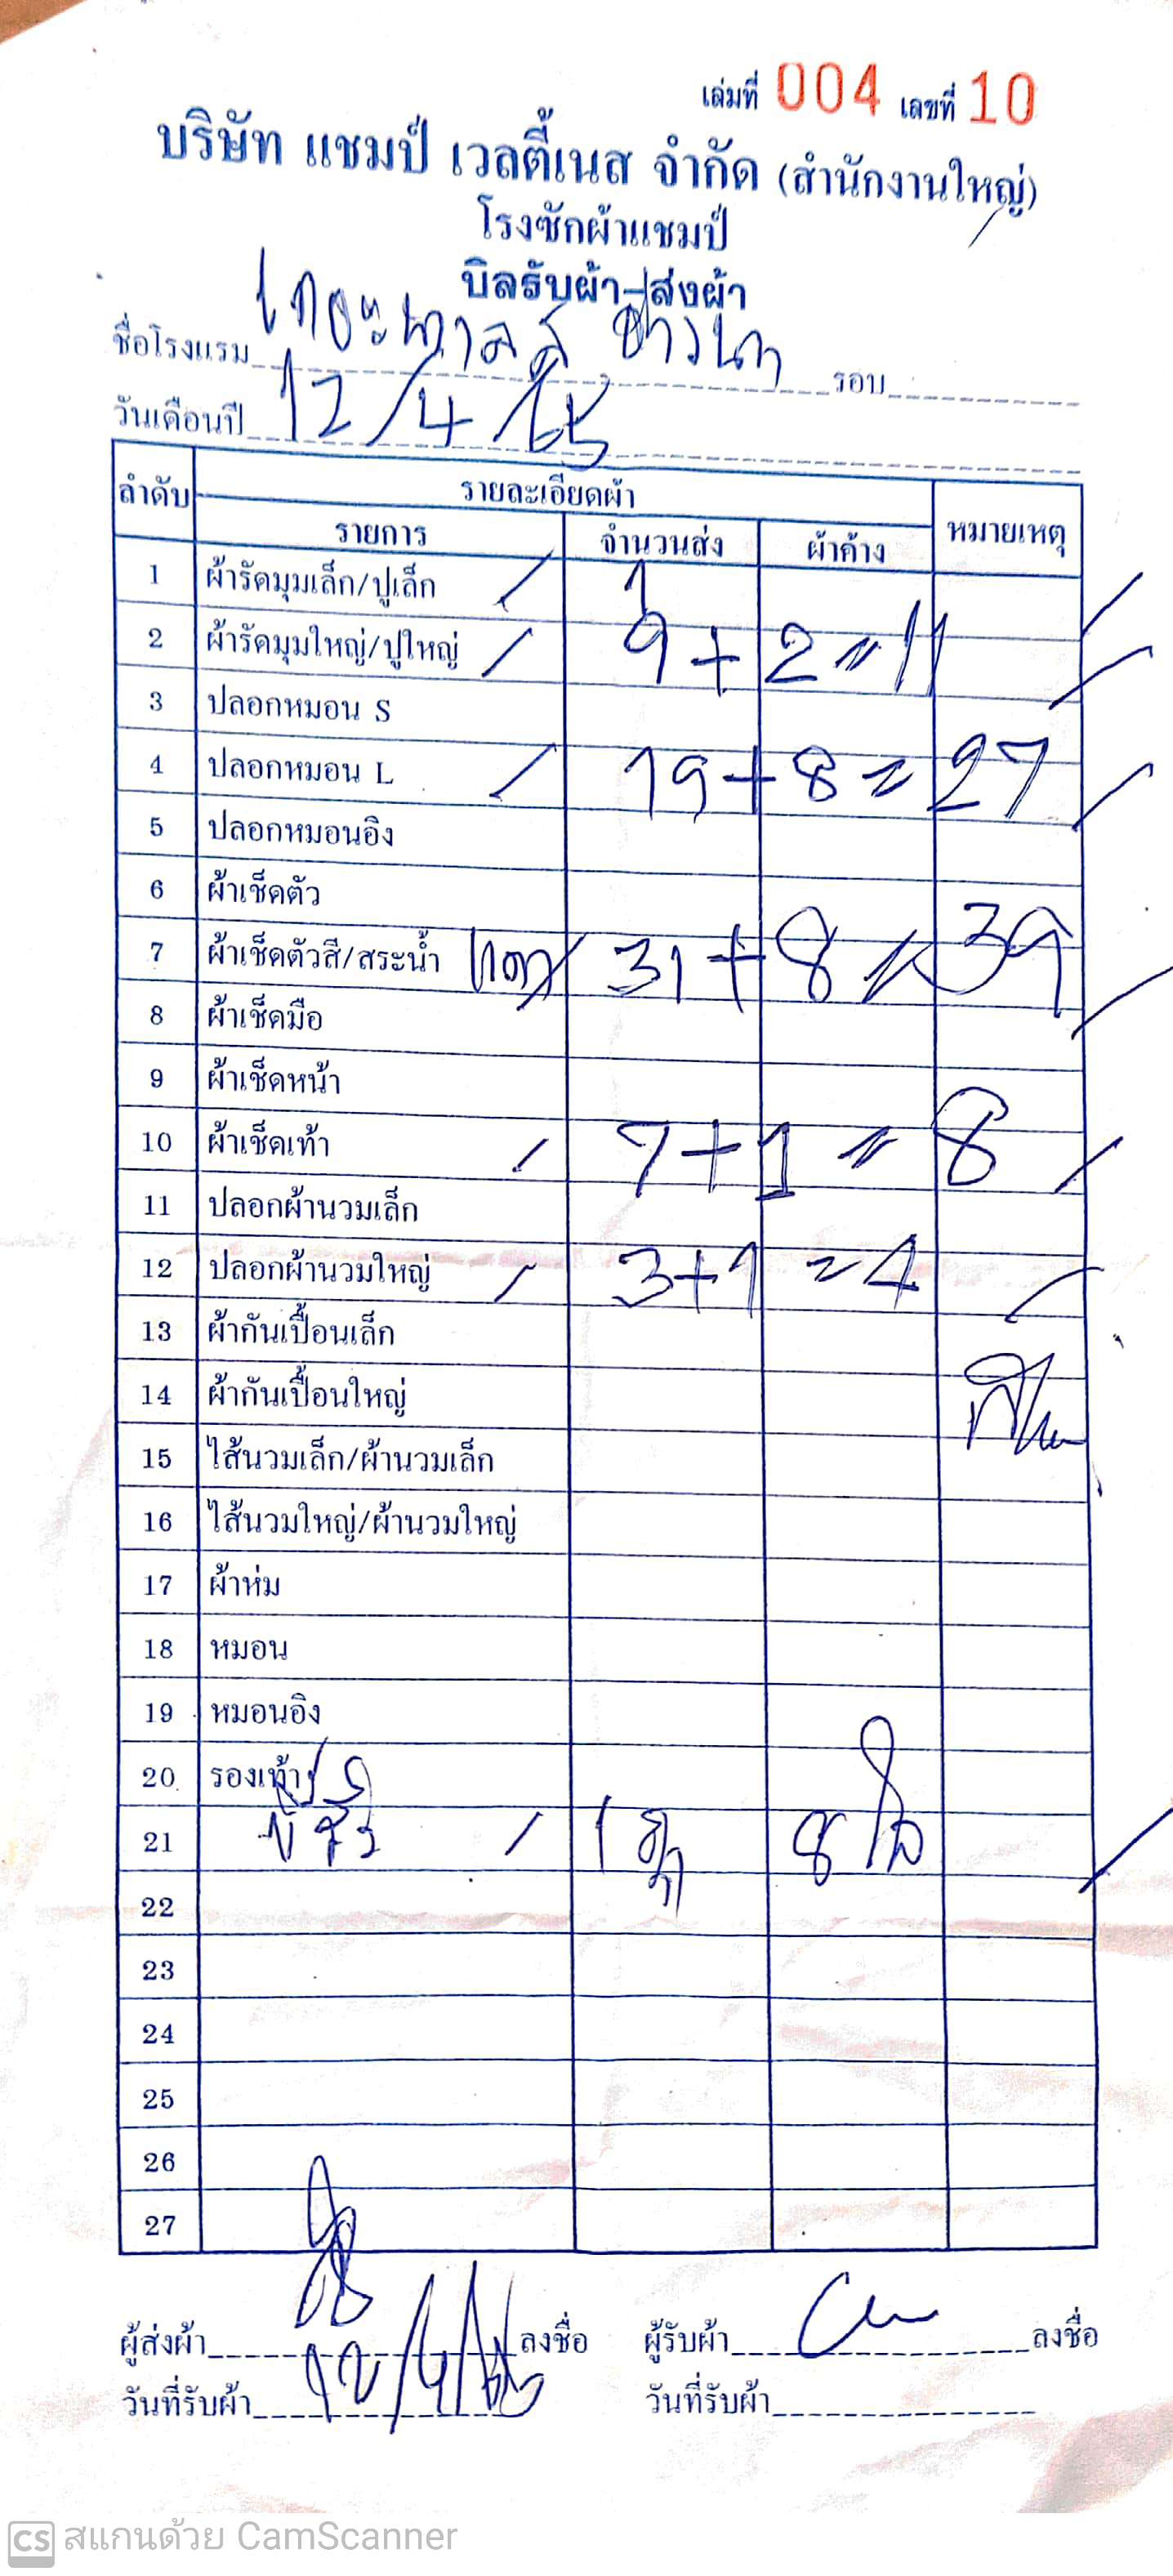 เล่มที่ 004 เลขที่ 10
บริษัท แชมป์ เวลตี้เนส จำกัด (สำนักงานใหญ่)
โรงซักผ้าแชมป์
บิลรับผ้า-ส่งผ้า
ชื่อโรงแรม รอบ
วันเดือนปี 12/4/65
ลำดับ รายละเอียดผ้า หมายเหตุ
รายการ จำนวนส่ง ผ้าค้าง
1 ผ้ารัดมุมเล็ก/ปูเล็ก / 1 /
2 ผ้ารัดมุมใหญ่/ปูใหญ่ / 9 + 2 = 11 /
3 ปลอกหมอน S
4 ปลอกหมอน L / 19 + 8 = 27 /
5 ปลอกหมอนอิง
6 ผ้าเช็ดตัว
7 ผ้าเช็ดตัวสี/สระน้ำ 31 + 8 = 39 /
8 ผ้าเช็ดมือ
9 ผ้าเช็ดหน้า
10 ผ้าเช็ดเท้า / 7 + 1 = 8 /
11 ปลอกผ้านวมเล็ก
12 ปลอกผ้านวมใหญ่ / 3 + 1 = 4 /
13 ผ้ากันเปื้อนเล็ก
14 ผ้ากันเปื้อนใหญ่
15 ไส้นวมเล็ก/ผ้านวมเล็ก
16 ไส้นวมใหญ่/ผ้านวมใหญ่
17 ผ้าห่ม
18 หมอน
19 หมอนอิง
20 รองเท้า
21 / 1 8 /
22
23
24
25
26
27
ผู้ส่งผ้า ลงชื่อ ผู้รับผ้า ลงชื่อ
วันที่รับผ้า 12/4/65 วันที่รับผ้า
CS สแกนด้วย CamScanner